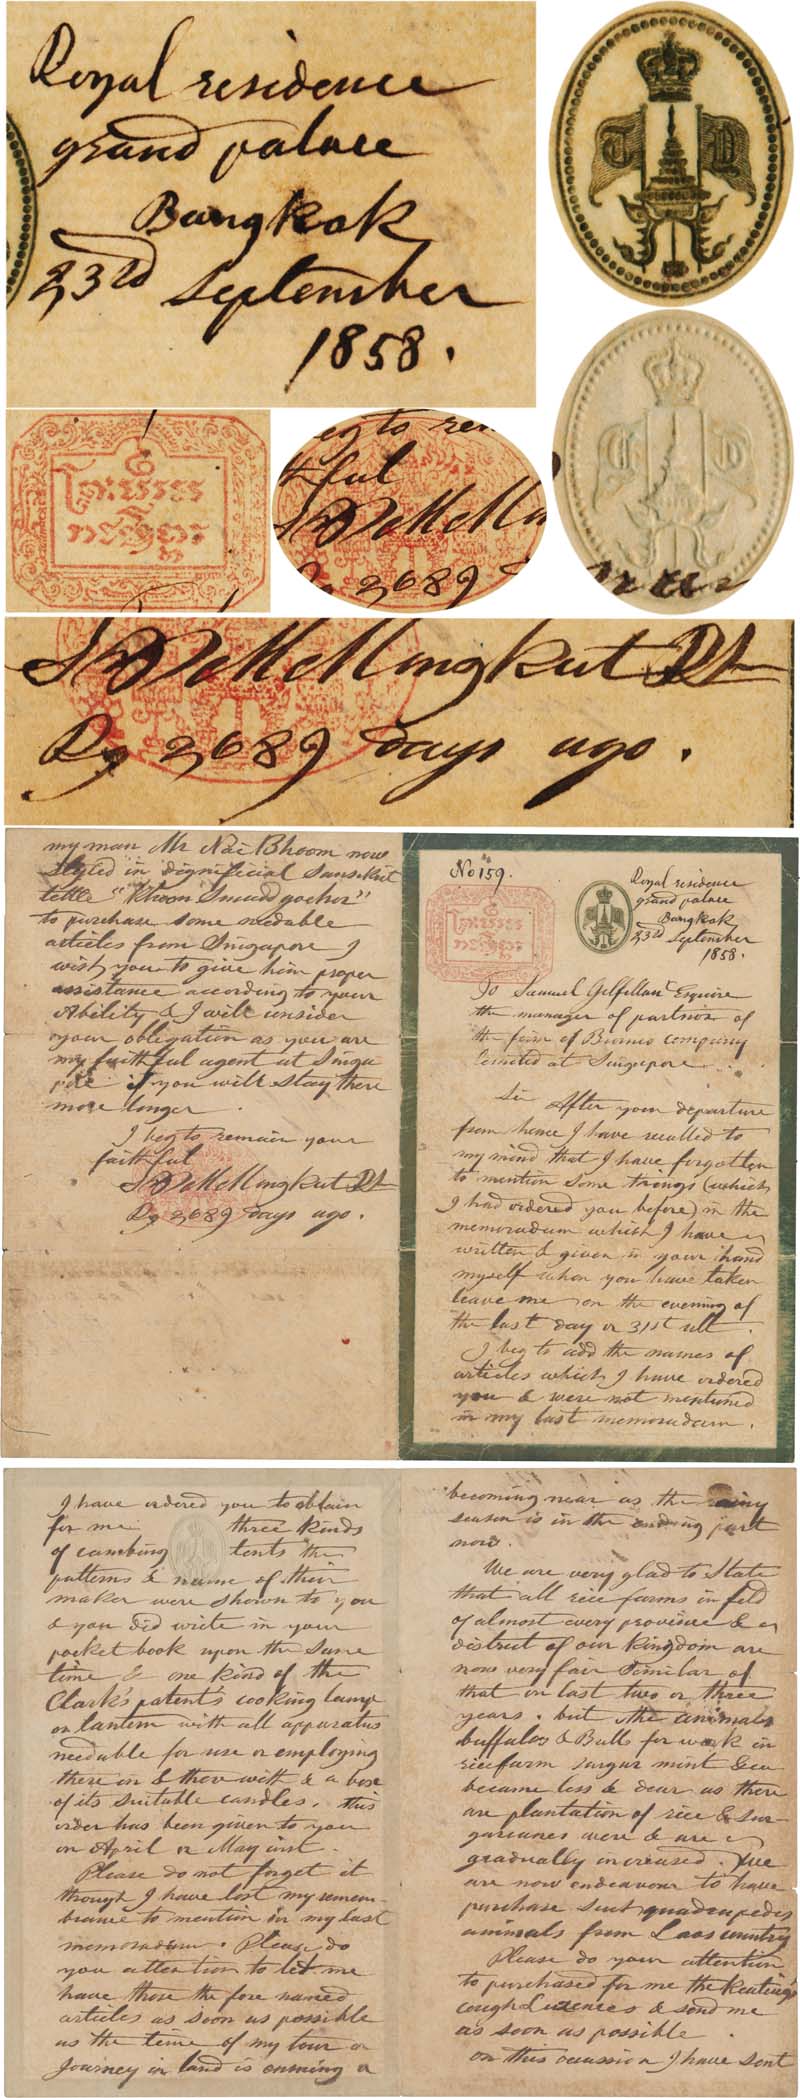 Royal residence
grand palace
Bangkok
23rd September
1858.
T D
beg to rem
thful
Mongkut
Rg 2,689
Mongkut
Rg 2,689 days ago.
No 159.
Royal residence
grand palace
Bangkok
23rd September
1858.
To Samuel Gilfillan Esquire
the manager of partnior of
the firm of Borneo company
Limited at Singapore
Sir After your departure
from hence I have recalled to
my mind that I have forgotten
to mention some things (which
I had ordered you before) in the
memoradum which I have
written & given in your hand
myself when you have taken
leave me on the evening of
the last day or 31st ult.
I beg to add the names of
articles which I have ordered
you & were not mentioned
in my last memoradum.
I have ordered you to obtain
for me three kinds
of tents the
patterns & name of their
maker were shown to you
& you did write in your
pocket book upon the same
time & one kind of the
Clark's patent's cooking lamp
or lantern with all apparatus
needable for use or employing
there on & there with & a box
of its suitable candles. this
order has been given to you
on April or May inst.
Please do not forget it
though I have lost my remem-
brance to mention in my last
memoradum. Please do
you attention to let me
have those the fore named
articles as soon as possible
as the time of my tour or
Journey in land is coming or
becoming near as the rainy
season is in the ending part
now.
We are very glad to State
that all rice farms in feld
of almost every province &
district of our kingdom are
now very fair Similar of
that in last two or three
years. but the animals
buffalos & Bulls for work in
rice farm sugar mint &ca
became less & dear as there
are plantation of rice & sur-
garcanes were & are
gradually increased. We
are now endeavour to have
purchase such quadrupedes
animals from Laos country
Please do your attention
to purchased for me the Keating's
cough Lozences & send me
as soon as possible.
on this ocussion I have sent
my man Mr Nai Bhoom now
styled in dignificial Sanskrit
tettle "Khoon Smudd gochor"
to purchase some needable
articles from Singapore I
wish you to give him proper
assistance according to your
Ability & I will consider
your obligation as you are
my faithful agent at Singa
pore if you will stay there
more longer.
I beg to remain your
faithful
Mongkut
Rg 2,689 days ago.